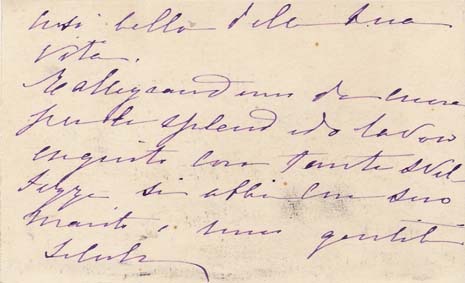 così bella della sua
vita.
Rallegrandomi di cuore
per lo splendido lavoro
eseguito con tanta svel
tezza si abbi con suo
marito, i miei gentili
saluti